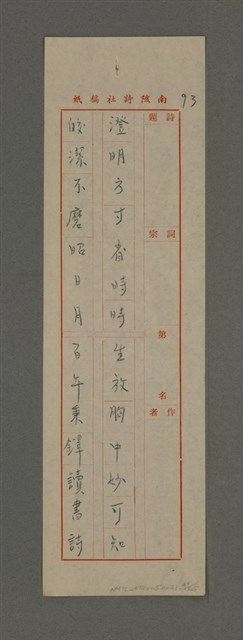 南陔詩社稿紙
93
詩題
詞宗
第 名
作者
澄明方寸省時時生放胸中妙可知
皎潔不磨昭日月百年東鐸讀書詩